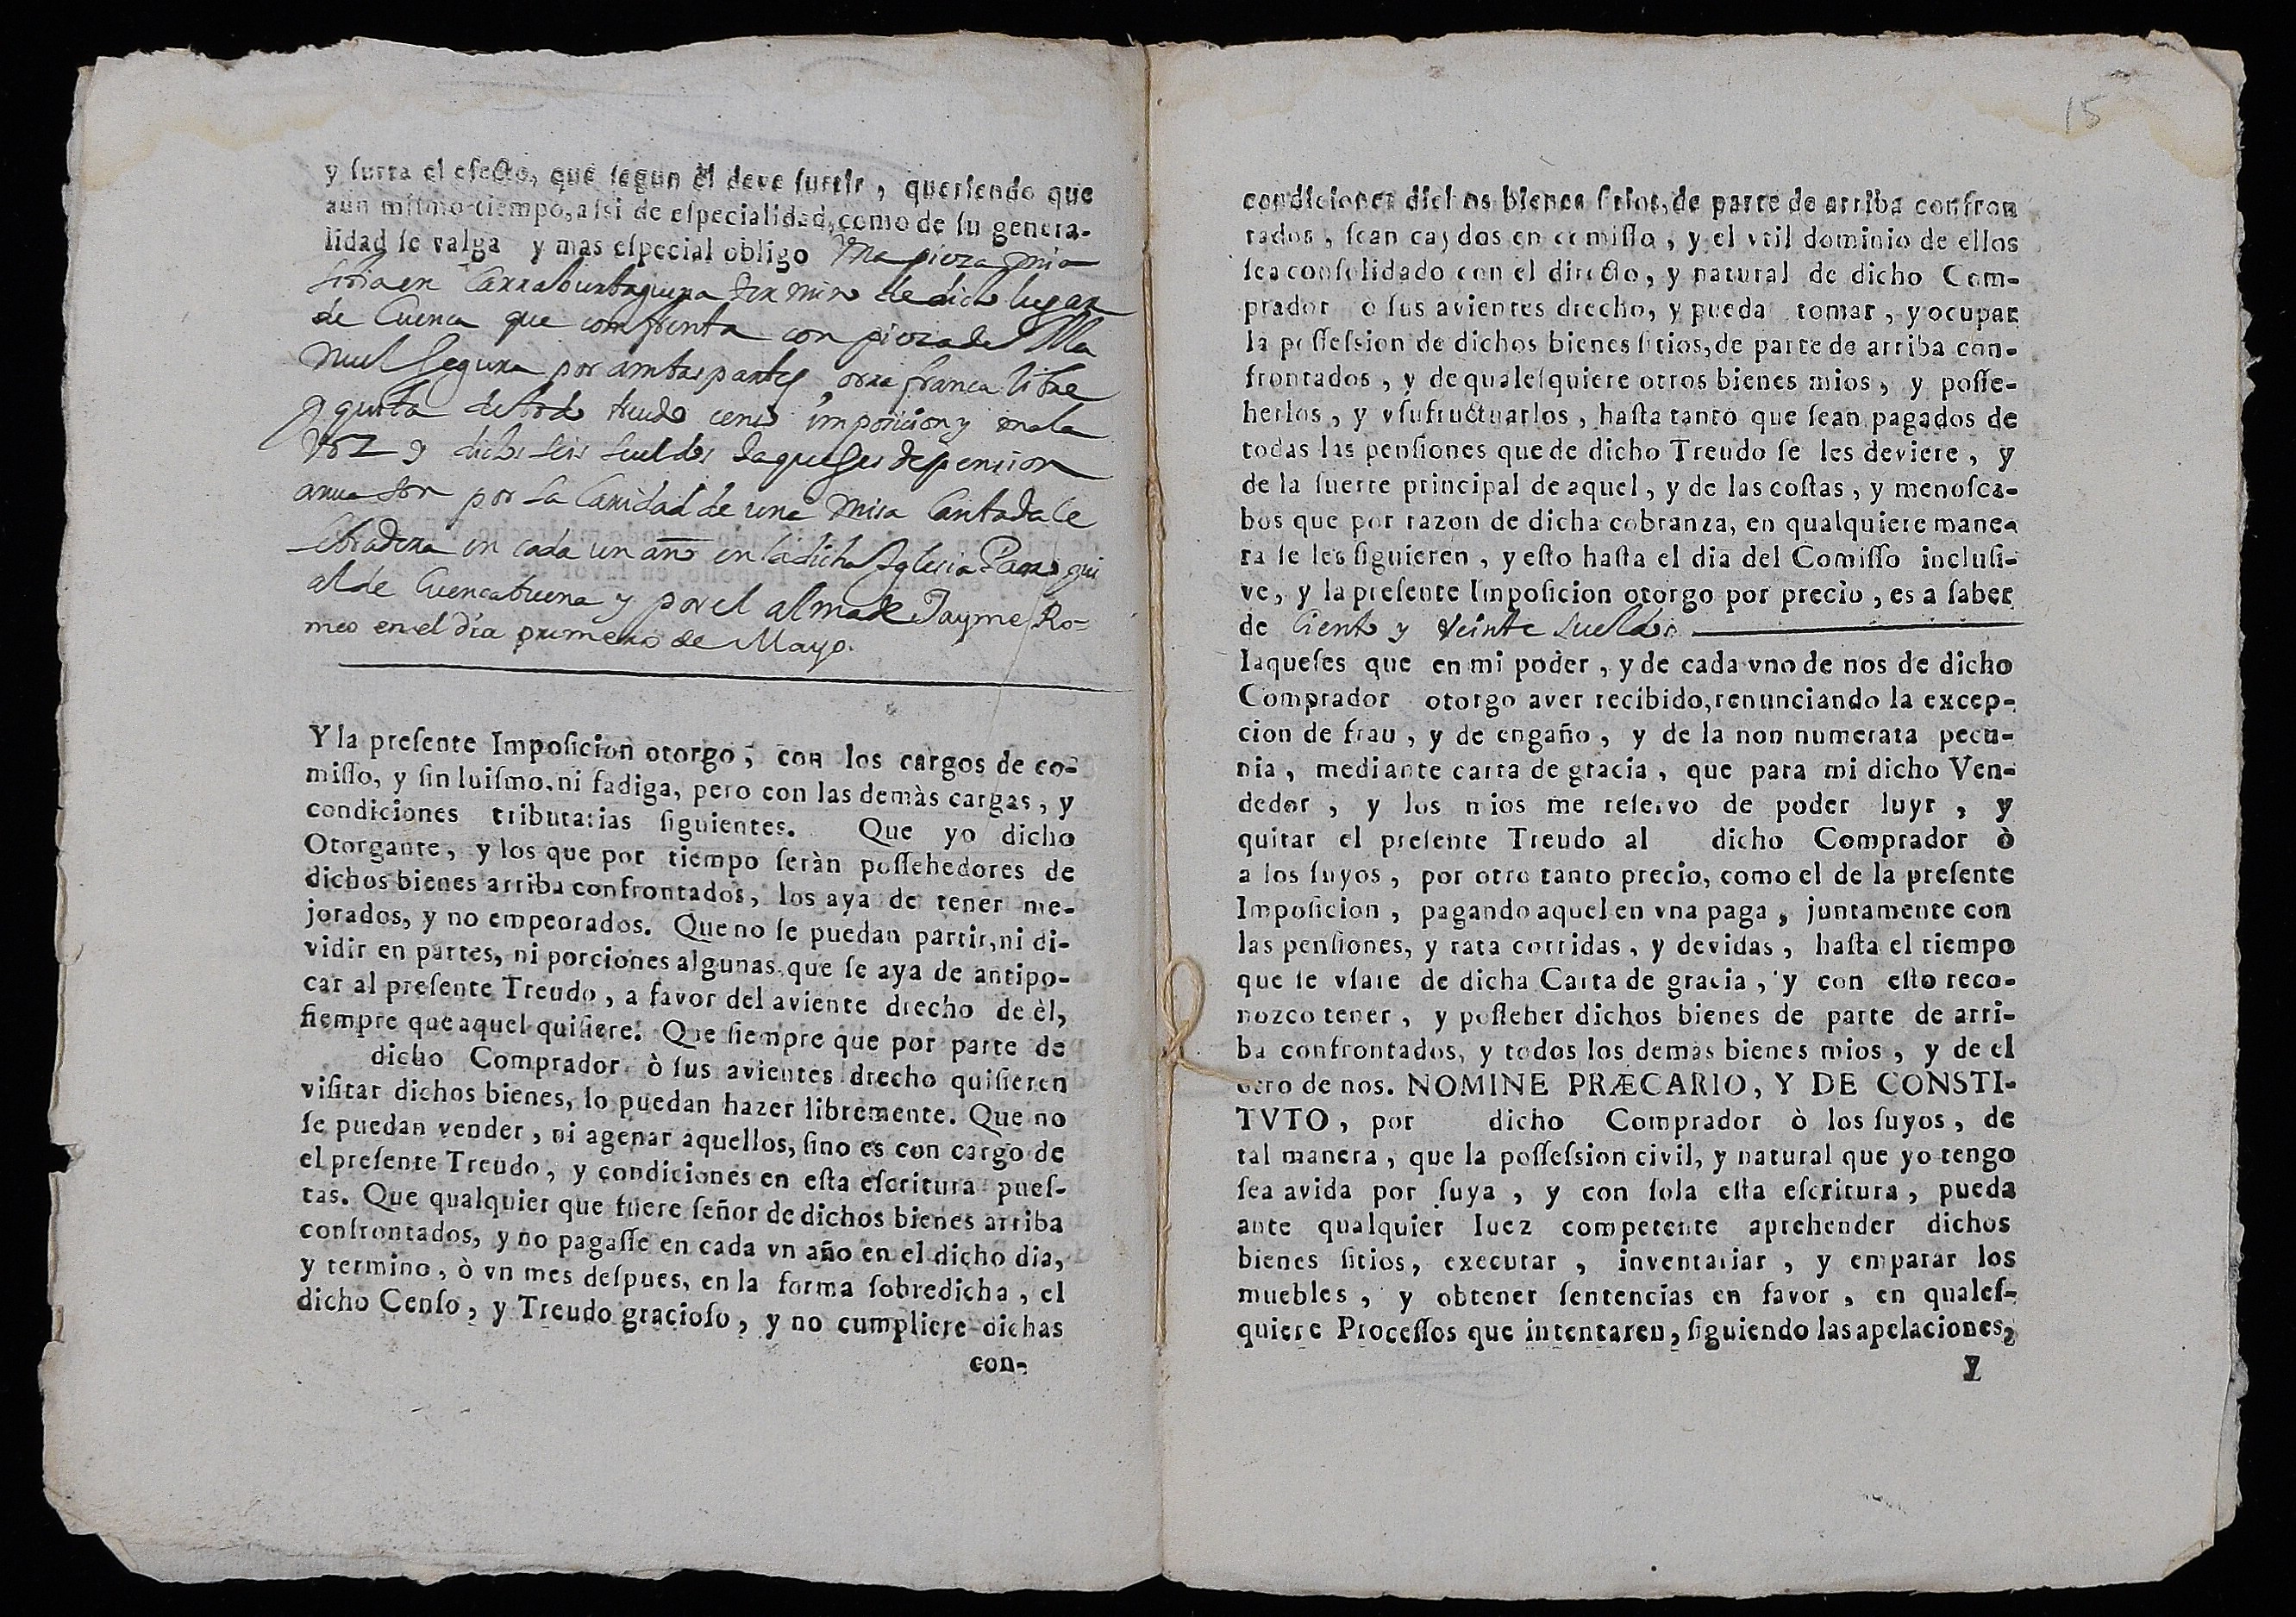 y surta el efecto, que segun èl deve surtir, queriendo que
aun mismo tiempo, assi de especialidad, como de su genera-
lidad se valga y mas especial obligo Vna pieza mia
sitia en termino de dicho lugar
de Cuenca que confrenta con pieza de Ma
nuel Segura por ambas partes, otra franca libre
y quita de todo treudo censo imposicion y mala
voz y dichos seis sueldos Jaqueses de pension
annua son por la Caridad de una Misa Cantada ce
lebradera en cada un año en la dicha Iglesia Parroqui
al de Cuencabuena y por el alma de Jayme Ro=
meo en el dia primero de Mayo.
Y la presente Imposicion otorgo, con los cargos de co-
misso, y sin luismo, ni fadiga, pero con las demàs cargas, y
condiciones tributarias siguientes. Que yo dicho
Otorgante, y los que por tiempo seràn possehedores de
dichos bienes arriba confrontados, los aya de tener me-
jorados, y no empeorados. Que no se puedan partir, ni di-
vidir en partes, ni porciones algunas, que se aya de antipo-
car al presente Treudo, a favor del aviente drecho de èl,
siempre que aquel quisiere. Que siempre que por parte de
dicho Comprador ò sus avientes drecho quisieren
visitar dichos bienes, lo puedan hazer libremente. Que no
se puedan vender, ni agenar aquellos, sino es con cargo de
el presente Treudo, y condiciones en esta escritura pues-
tas. Que qualquier que fuere señor de dichos bienes arriba
confrontados, y no pagasse en cada vn año en el dicho dia,
y termino, ò vn mes despues, en la forma sobredicha, el
dicho Censo, y Treudo gracioso, y no cumpliere dichas
con-
15
condiciones dichos bienes sitios, de parte de arriba confron
tados, sean caydos en comisso, y el vtil dominio de ellos
sea consolidado con el directo, y natural de dicho Com-
prador ò sus avientes drecho, y pueda tomar, y ocupar
la possession de dichos bienes sitios, de parte de arriba con-
frontados, y de qualesquiere otros bienes mios, y posse-
herlos, y vsufructuarlos, hasta tanto que sean pagados de
todas las pensiones que de dicho Treudo se les deviere, y
de la suerte principal de aquel, y de las costas, y menosca-
bos que por razon de dicha cobranza, en qualquiere mane-
ra se les siguieren, y esto hasta el dia del Comisso inclusi-
ve, y la presente Imposicion otorgo por precio, es a saber
de Ciento y Veinte sueldos
Iaqueses que en mi poder, y de cada vno de nos de dicho
Comprador otorgo aver recibido, renunciando la excep-
cion de frau, y de engaño, y de la non numerata pecu-
nia, mediante carta de gracia, que para mi dicho Ven-
dedor, y los mios me reservo de poder luyr, y
quitar el presente Treudo al dicho Comprador ò
a los suyos, por otro tanto precio, como el de la presente
Imposicion, pagando aquel en vna paga, juntamente con
las pensiones, y rata corridas, y devidas, hasta el tiempo
que se vsare de dicha Carta de gracia, y con esto reco-
nozco tener, y posseher dichos bienes de parte de arri-
ba confrontados, y todos los demas bienes mios, y de el
otro de nos. NOMINE PRÆCARIO, Y DE CONSTI-
TVTO, por dicho Comprador ò los suyos, de
tal manera, que la possession civil, y natural que yo tengo
sea avida por suya, y con sola esta escritura, pueda
ante qualquier Iuez competente aprehender dichos
bienes sitios, executar, inventariar, y emparar los
muebles, y obtener sentencias en favor, en quales-
quiere Processos que intentaren, siguiendo las apelaciones,
y